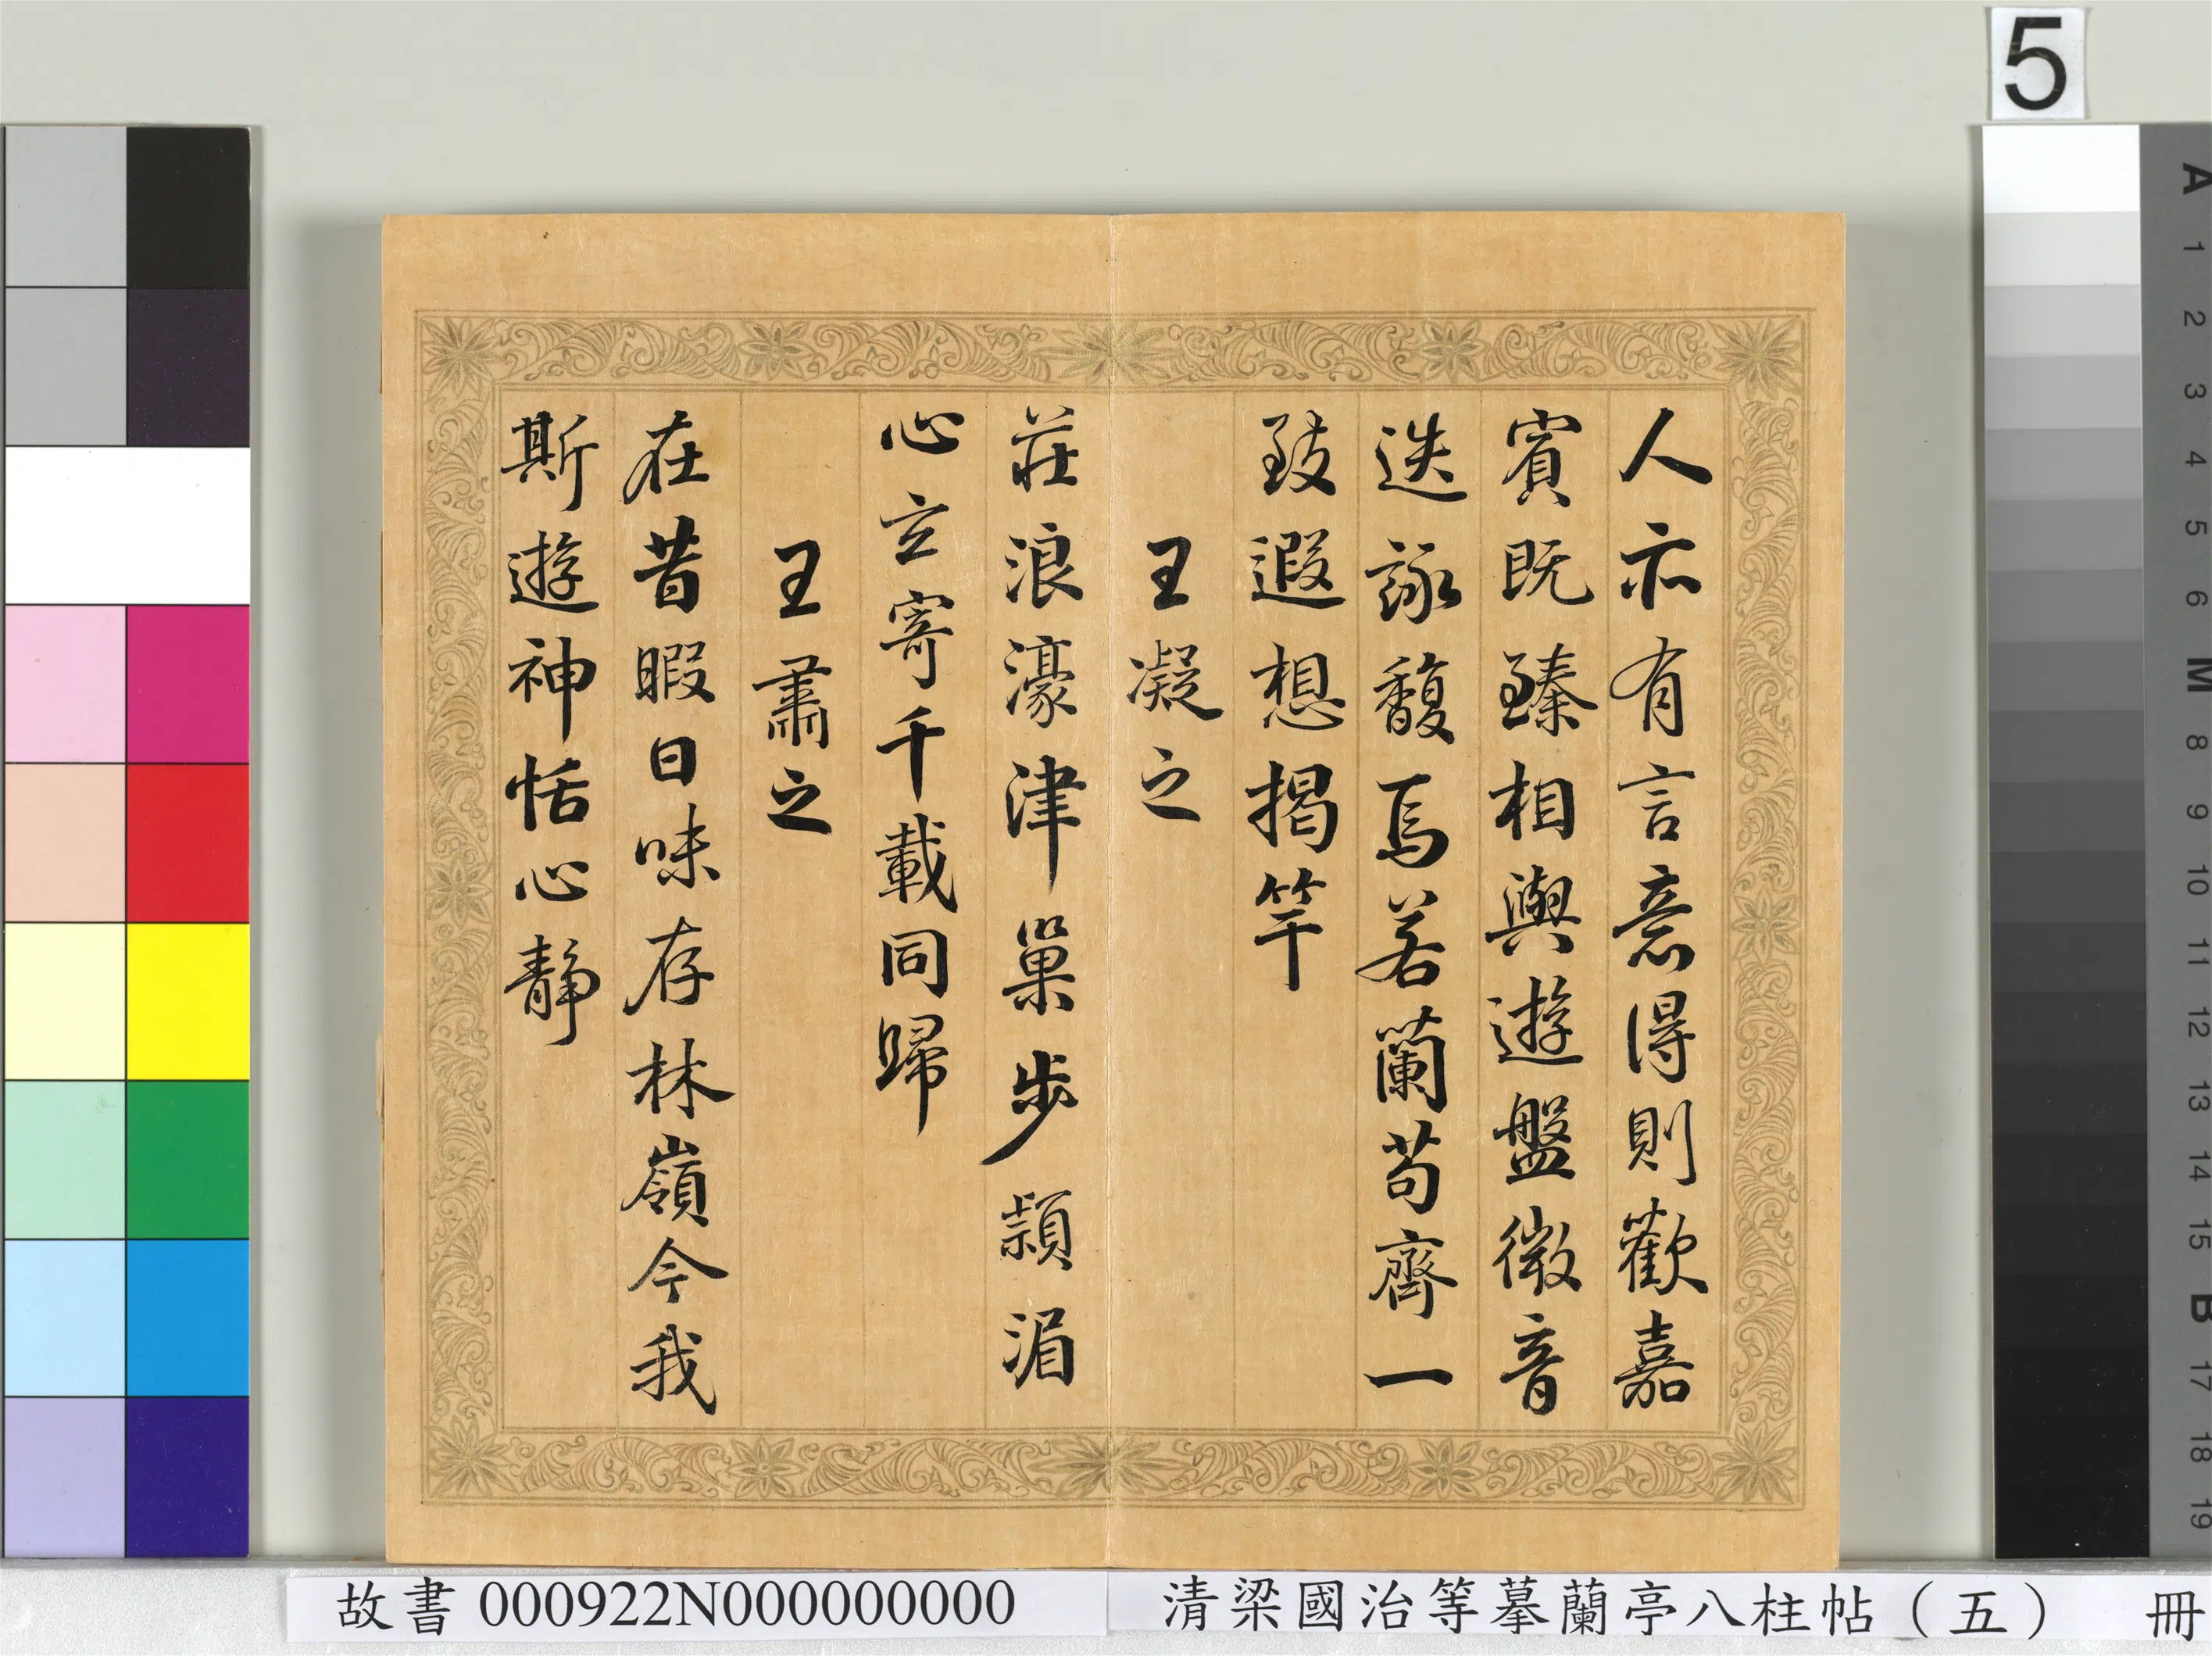 5
人亦有言意得則歡嘉
賓既臻相與遊盤微音
迭詠馥焉若蘭苟齊一
致遐想揭竿
王凝之
莊浪濠津巢步潁湄
心立寄千載同歸
王肅之
在昔暇日味存林嶺今我
斯遊神恬心靜
故書 000922N000000000
清梁國治等摹蘭亭八柱帖（五） 冊
A 1 2 3 4 5 6 M 8 9 10 11 12 13 14 15 B 17 18 19